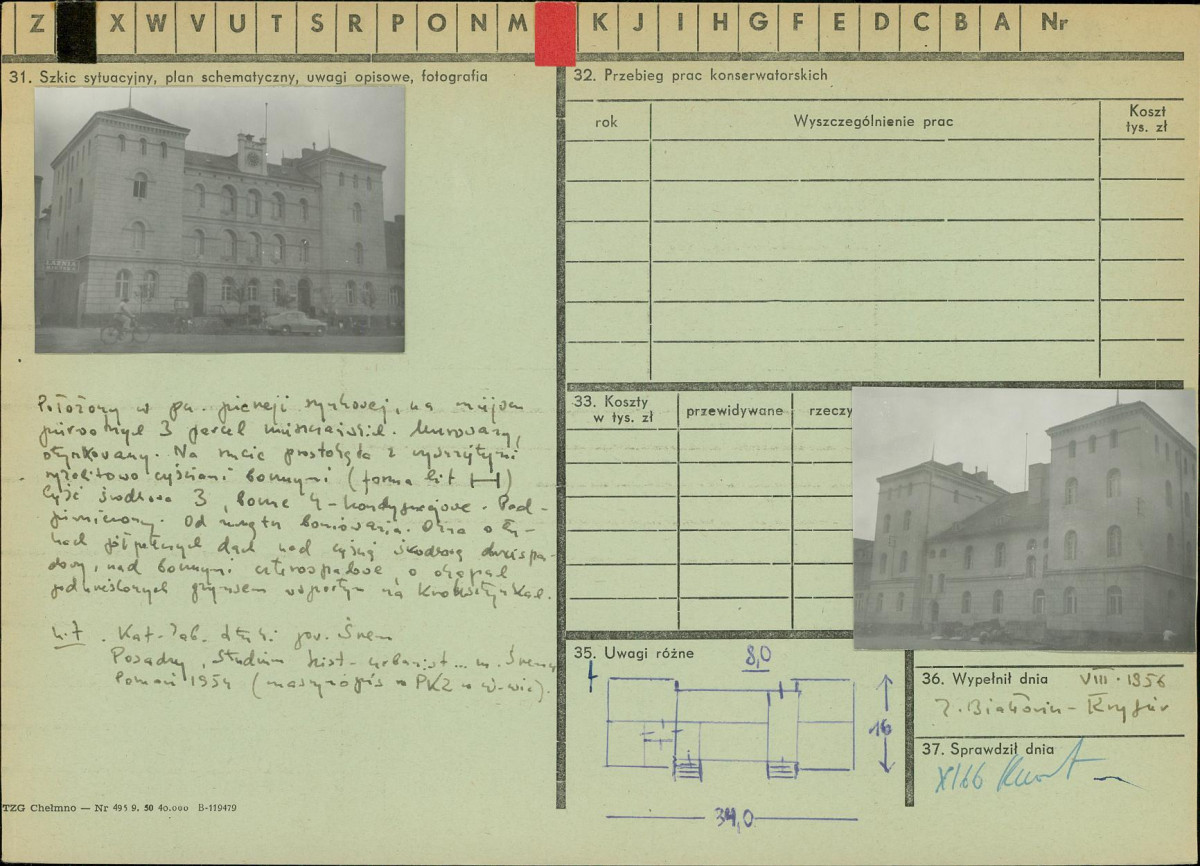 Z X W V U T S R P O N M K J I H G F E D C B A Nr
31. Szkic sytuacyjny, plan schematyczny, uwagi opisowe, fotografia
ŁAŹNIA
Położony w pn. pierzei rynkowej, na miejscu
3 parcel Murowany,
otynkowany. Na rzucie prostokąta z
bocznymi (forma lit H)
Część środkowa 3, boczne 4-kondygnacjowe. Pod-
piwniczony. Od boniowania. Okna o łu-
kach półpełnych dach nad częścią środkową dwuspa-
dowy, nad bocznymi czterospadowe, o okapach
podkreślonych gzymsem wspartym na kroksztynkach.
Kat. Zab. pow. Śrem
Studium hist-urbanist... m. Śremu
Poznań 1954 (maszynopis w PKZ w
TZG Chełmno — Nr 495 9. 50 40.000 B-119479
32. Przebieg prac konserwatorskich
rok Wyszczególnienie prac Koszt
tys. zł
33. Koszty
w tys. zł przewidywane rzeczy
35. Uwagi różne
8,0
16
34,0
36. Wypełnił dnia VIII. 1956
37. Sprawdził dnia
XI 66